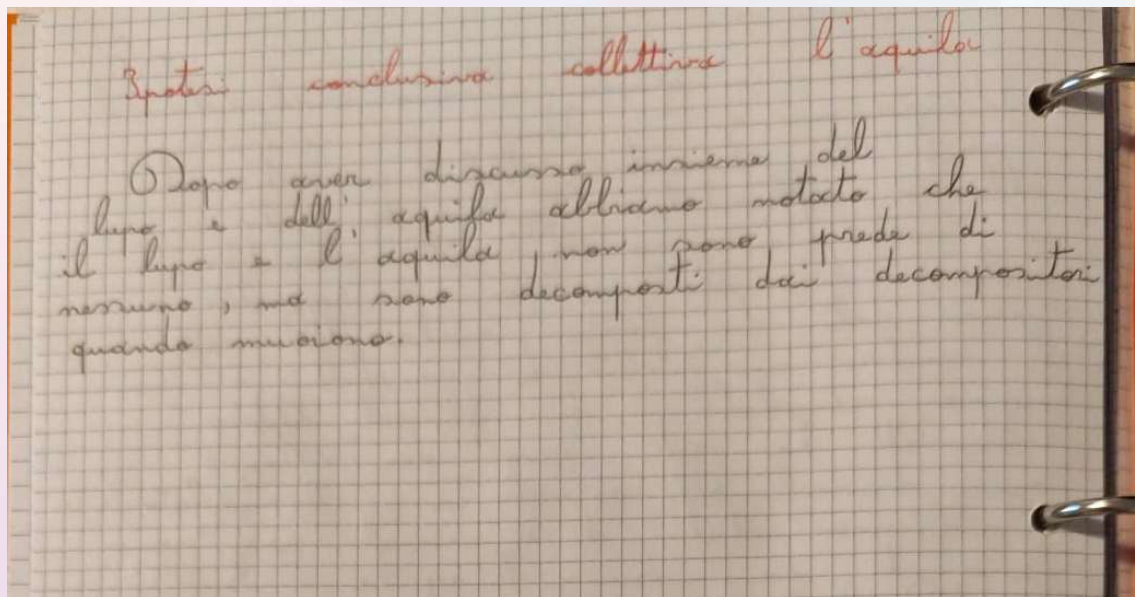 Ipotesi conclusiva collettiva l'aquila
Dopo aver discusso insieme del
lupo e dell'aquila abbiamo notato che
il lupo e l'aquila, non sono prede di
nessuno, ma sono decomposti dai decompositori
quando muoiono.